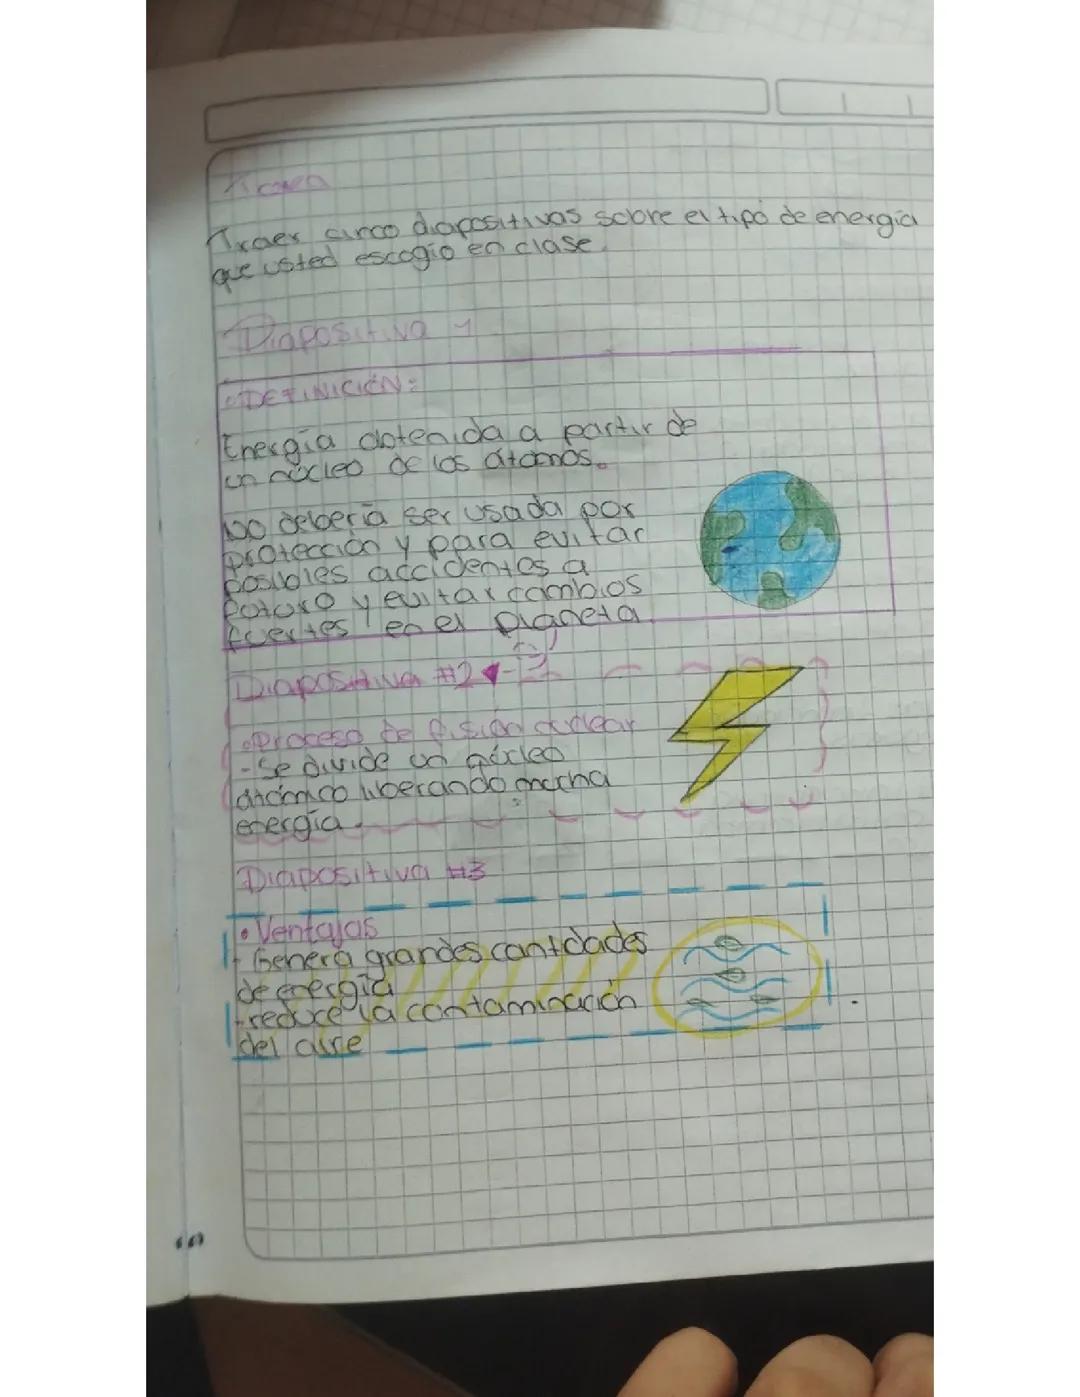 Traer cinco diapositivas sobre el tipo de energía
que usted escogio en clase.
Diapositiva 1
• DEFINICIÓN:
Energía obtenida a partir de
un núcleo de los átomos.
No debería ser usada por
protección y para evitar
posibles accidentes a
futuro y evitar cambios
fuertes en el planeta
Diapositiva #2
• Proceso de fisión nuclear
- Se divide un núcleo
atómico liberando mucha
energía.
Diapositiva #3
• Ventajas
+ Genera grandes cantidades
de energía
+ reduce la contaminación
del aire